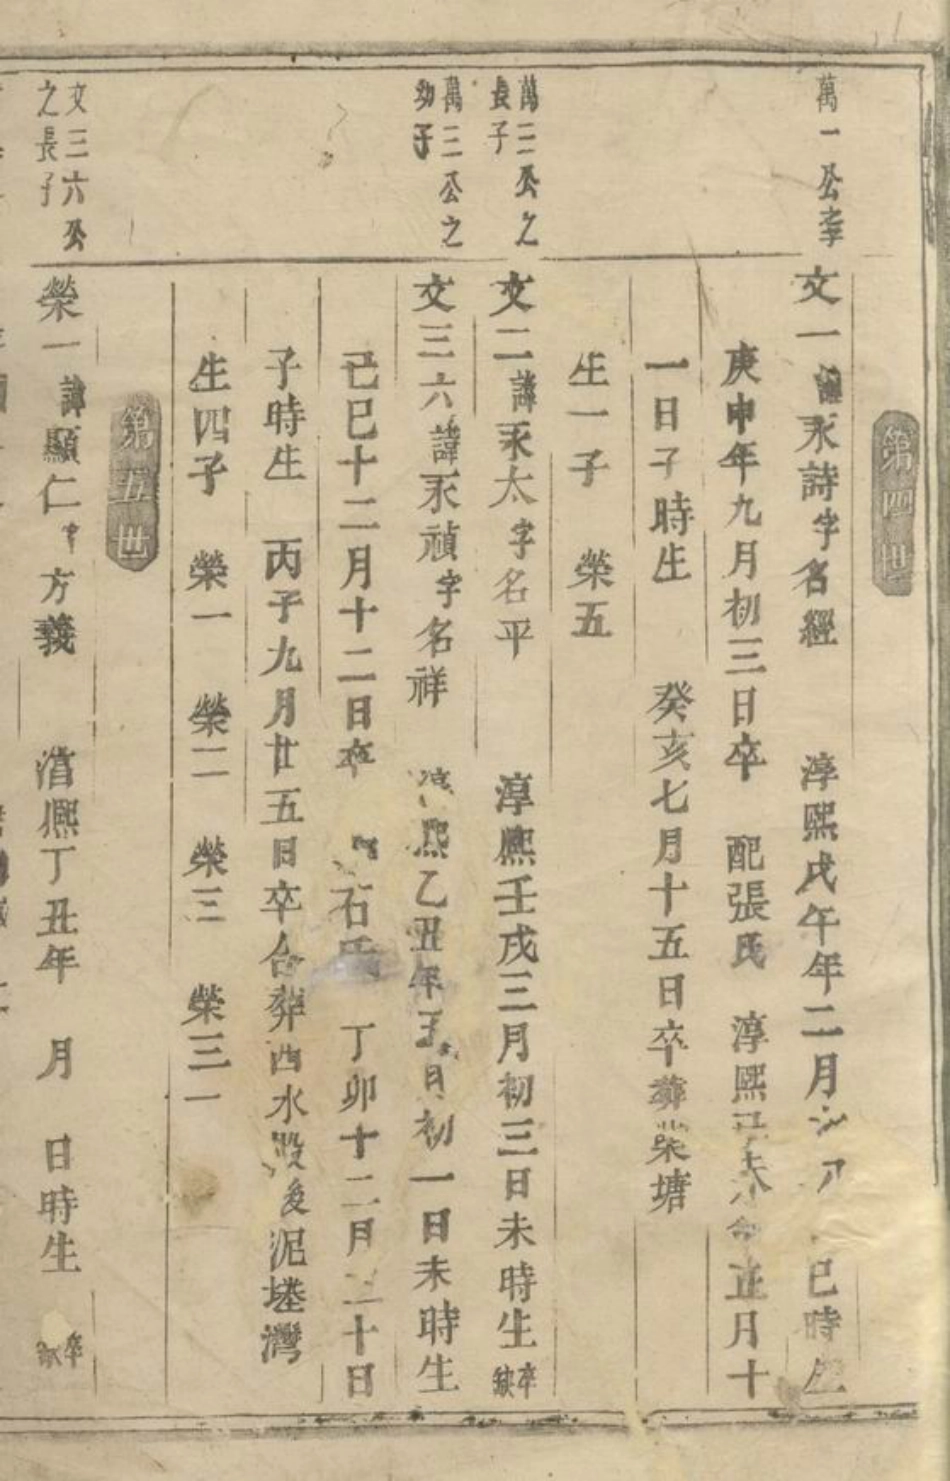 第四世
萬一公李
文一諱永詩字名經 淳熙戊午年二月 巳時生
庚申年九月初三日卒 配張氏 淳熙 未 正月十
一日子時生 癸亥七月十五日卒葬柴塘
生一子 榮五
萬二公之
長子
文二諱永太字名平 淳熙壬戌三月初三日未時生卒缺
萬三公之
幼子
文三六諱永禎字名祥 熙乙丑年五月初一日未時生
己巳十二月十二日卒 石氏 丁卯十二月二十日
子時生 丙子九月廿五日卒合葬西水 後泥塟灣
生四子 榮一 榮二 榮三 榮三一
第五世
文三六公
之長子
榮一諱顯仁字方義 淳熙丁丑年 月 日時生 卒缺